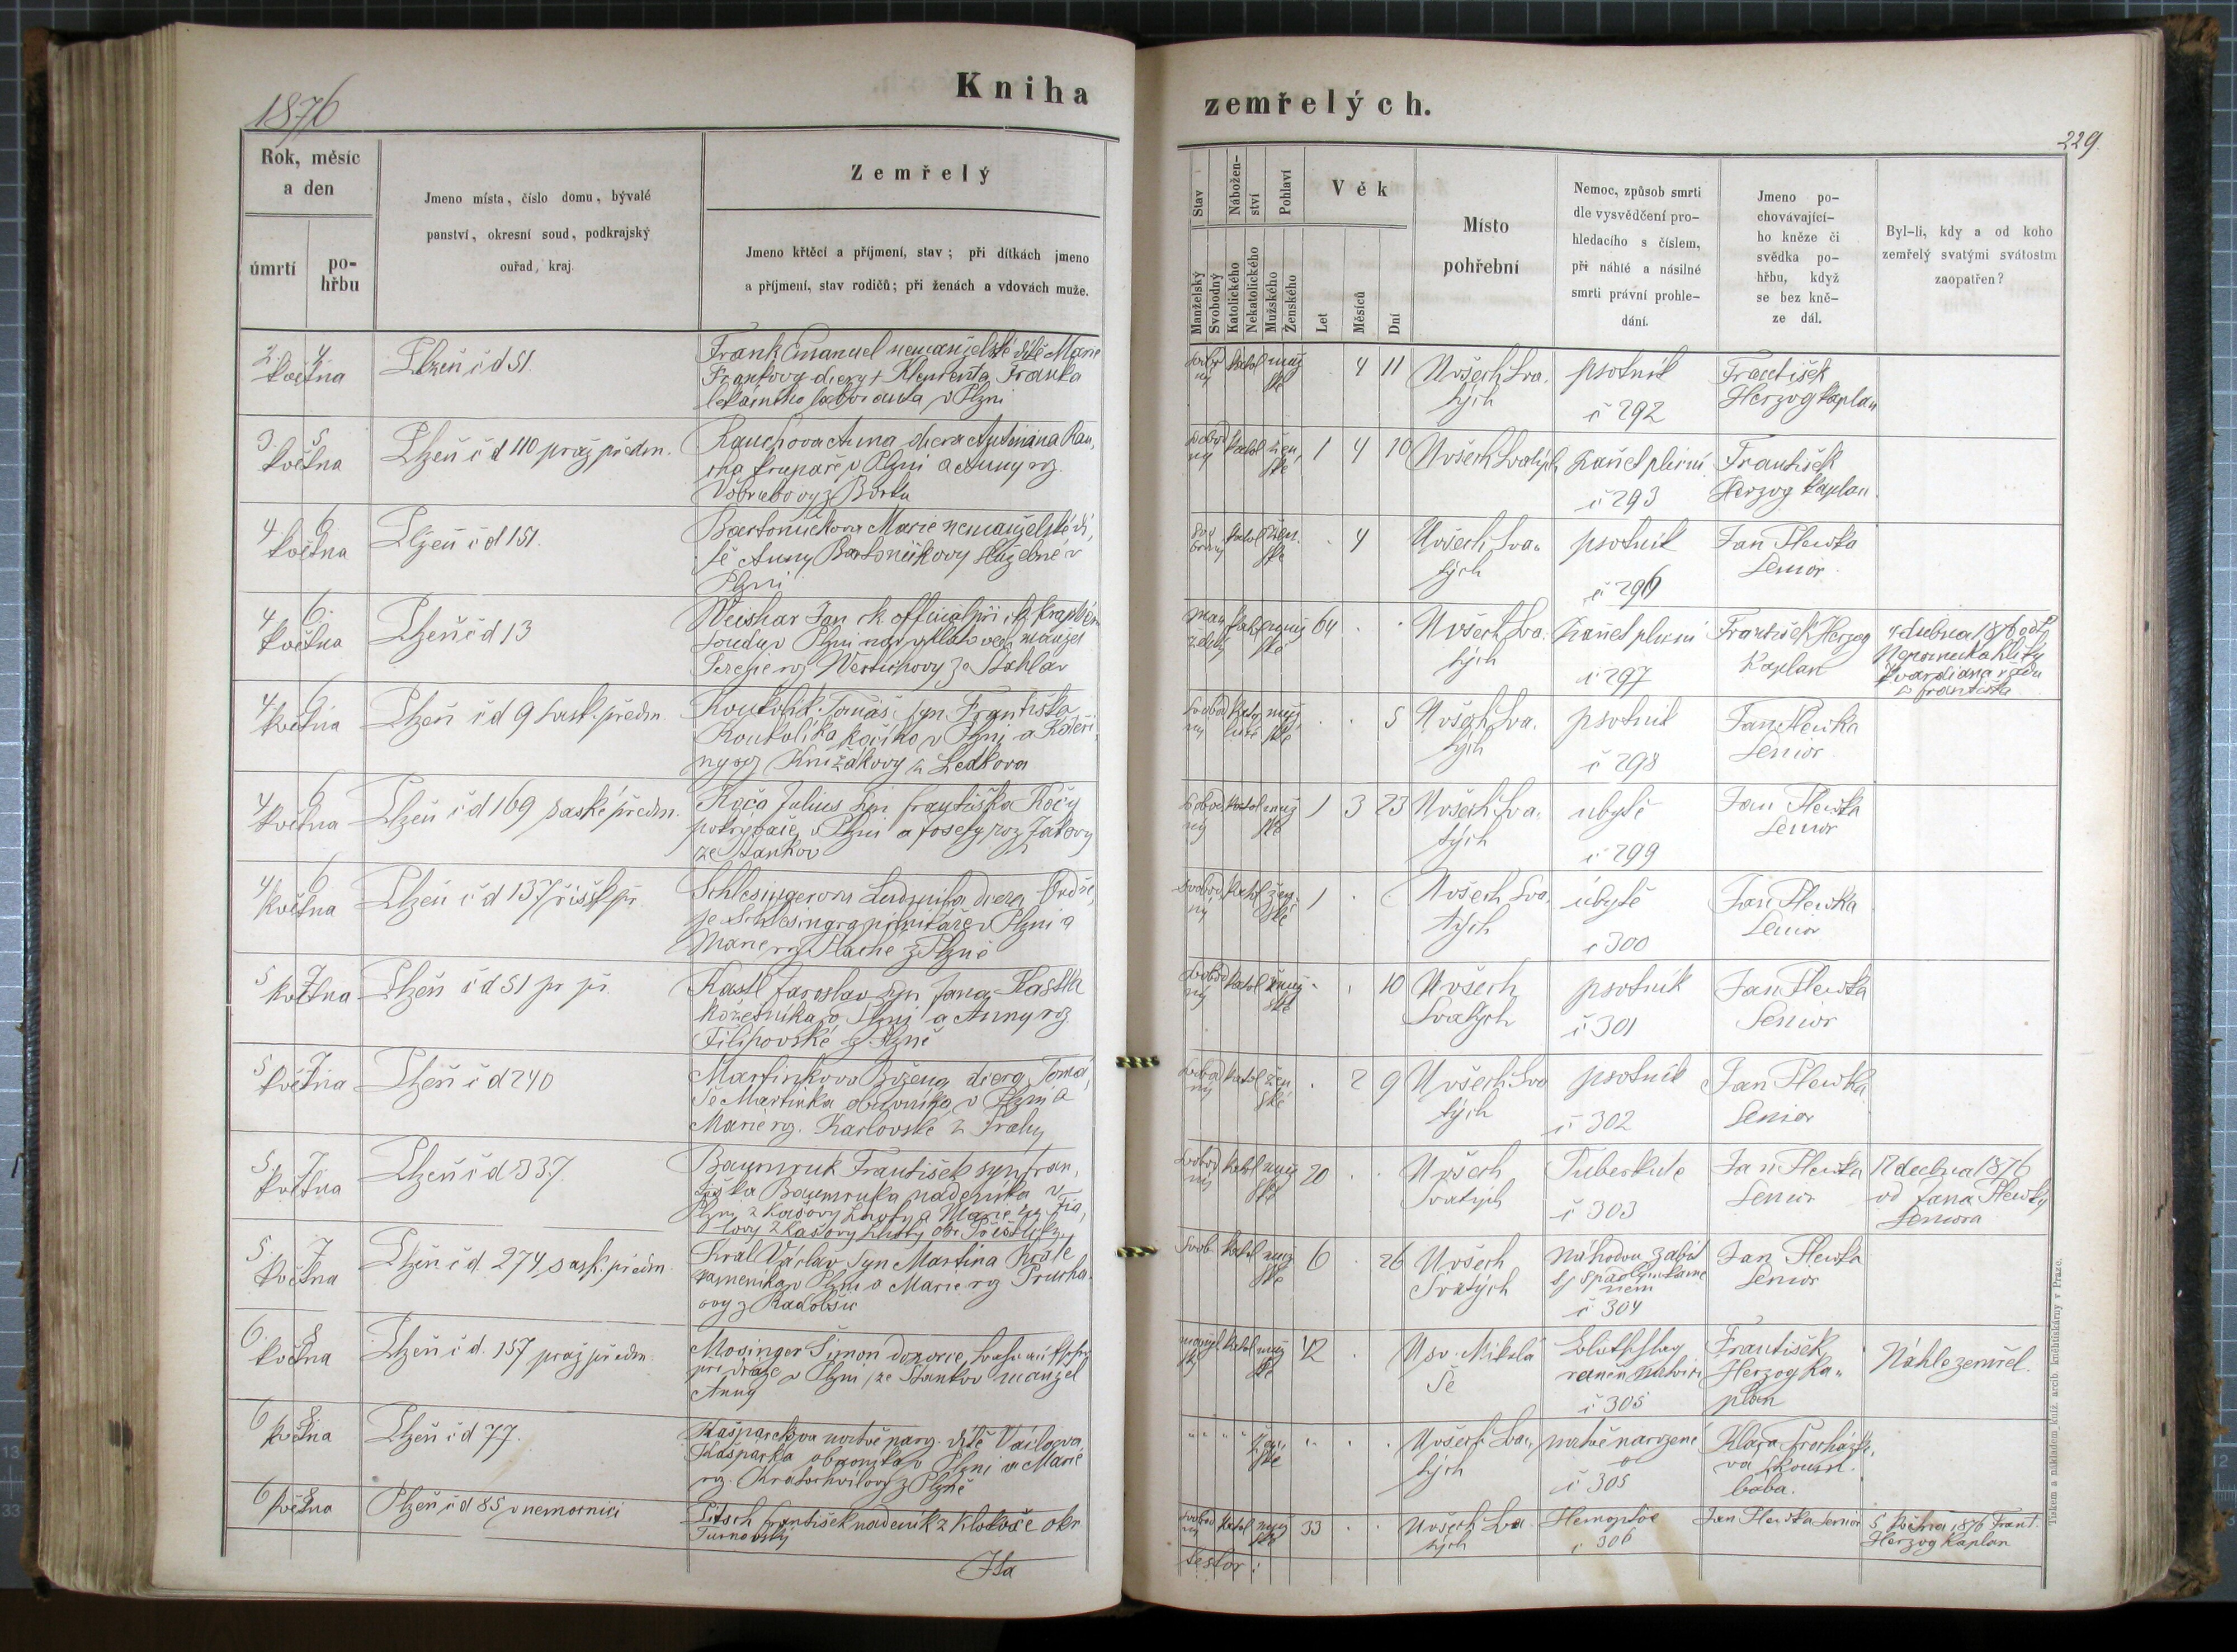 1876
Kniha
zemřelých.
229.
Rok, měsíc
a den
úmrtí
po-
hřbu
Jmeno místa, číslo domu, bývalé
panství, okresní soud, podkrajský
ouřad, kraj.
Zemřelý
Jmeno křtěcí a příjmení, stav; při dítkách jmeno
a příjmení, stav rodičů; při ženách a vdovách muže.
Stav
Nábožen-
ství
Pohlaví
Manželský
Svobodný
Katolického
Nekatolického
Mužského
Ženského
Věk
Let
Měsíců
Dní
Místo
pohřební
Nemoc, způsob smrti
dle vysvědčení pro-
hledacího s číslem,
při náhlé a násilné
smrti právní prohle-
dání.
Jmeno po-
chovávající-
ho kněze či
svědka po-
hřbu, když
se bez kně-
ze dál.
Byl-li, kdy a od koho
zemřelý svatými svátostm
zaopatřen?
2. 4
května
Plzeň č d 51.
Frank Emanuel nemanželské dítě Marie
Frankovy dcery + Klementa Franka
v Plzni
svobod
ný
katol
muž
ské
4 11
U všech Sva.
tých
psotník
č 292
František
Herzog kaplan
3. 5
května
Plzeň č d 110 praž předm.
Rauchova Anna dcera Antonina Rau,
cha krupaře v Plzni a Anny roz.
z Borku
svobod
ný
katol
žen,
ské
1 4 10
U všech Svatých
zánět plicní
č 293
František
Herzog kaplan
4. 6
května
Plzeň č d 151.
Bartoničkova Marie nemanželské dí,
tě Anny Bartoničkovy služebné v
Plzni
svo
bodný
katol
žen.
ské
4
U všech Sva„
tých
psotník
č 296
Jan Hlewka
Senior.
4 6.
května
Plzeň č d 13
Weishar Jan ck official při ck krajském
soudu v Plzni manžel
Terezie roz ze Stahlav
man
želský
katol
muž
ské
64
U všech Sva.
tých
zánět plicní
č 297
František Herzog
Kaplan
dubna 1876 od
Nepomuka
kvardiana řádu
s Františka
4 6
května
Plzeň č d 9 sask. předm
Koukolík Tomáš syn Františka
Koukolíka kočího v Plzni a Kateři,
ny roz Knižákovy z Ledkova
svobod
ný
kato
lické
muž
ské
5
U všech Sva.
tých
psotník
č 298
Jan Hlewka
Senior.
4 6
května
Plzeň č d 169 saské předm.
Kóča Julius syn Františka Kóčy
pokrývače v Plzni a Josefy roz
ze Stankov
svobod
ný
katol
muž
ské
1 3 23
U všech Sva.
tých
ubytě
č 299
Jan Hlewka
Senior
4 6
května
Plzeň č d 137 říšsk. př
Schlesingerova Ludmila dcera Ondře,
je Schlesingra v Plzni a
Marie roz Plaché z Plzně
svobod
ný
katol
žen
ské
1
U všech Sva
tých
úbytě
č 300
Jan Hlewka
Senior
5 7
května
Plzeň č d 51 pr př.
Kastl Jaroslav syn Jana Kastla
kožešníka v Plzni a Anny roz
Filipovské z Plzně
svobod
ný
katol
muž
ské
10
U všech
Svatých
psotník
č 301
Jan Hlewka
Senior
5 7
května
Plzeň č d 240
Martinkova Božena dcera Tomá,
še Martinka obuvníka v Plzni a
Marie roz. Karlovské z Prahy
svobod
ný
katol
žen
ské
2 9
U všech Sva
tých
psotník
č 302
Jan Hlewka
Senior
5. 7
května
Plzeň č d 337.
Baumruk František syn Fran,
tiška Baumruka nádeníka v
Plzni z Kašovy Lhoty a Marie
z Kašovy Lhoty okr.
svobod
ný
katol
muž
ské
20
U všech
Svatých
Tuberkule
č 303
Jan Hlewka
Senior
17 dubna 1876
od Jana Hlewky
Seniora
5. 7
května
Plzeň č d. 274 sask. předm
Král Václav syn Martina Krále
kamenika v Plzni a Marie roz Prucho.
ovy z Radobšic
Svob.
katol
muž
ské
6 26
U všech
Svatých
Náhodou zabit
kame
nem
č 304
Jan Hlewka
Senior
6. 8
května
Plzeň č d. 157 praž předm
Mosinger Šimon dozorce
při dráze v Plzni ze Stankov manžel
Anny
manžel
ský
katol
muž
ské
42
U sv. Mikolá
še
Blutschlag
raněn mrtvicí
č 305
František
Herzog Ka„
plan
Náhle zemřel.
6 8
května
Plzeň č d 77.
Kašparkova mrtvě naroz. dítě Václava
Kašparka obuvníka v Plzni a Marie
roz. Kratochvilovy z Plzně
" " " "
žen,
ské
U všech Sva„
tých
mrtvě narozené
č 305
Klara Procházko,
vá zkouš.
baba.
6 8
května
Plzeň č d 85 v nemocnici
František nadeník z Klokoče okr
Turnovský
svobod
ný
katol
muž
ské
33
U všech Sva
tých
Hemoptoe
č 306
Jan Hlewka Senior
5 května 1876 Frant.
Herzog kaplan
Tiskem a nákladem kníž. arcib. knihtiskárny v Praze.